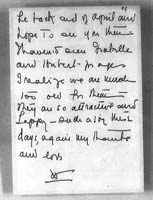 be back end of April and
hope to see you then
I haven't seen Isabelle
and Hubert for ages
I realize we are much
too old for them
They are so attractive and
happy — such a joy these
days, again my thanks
and love